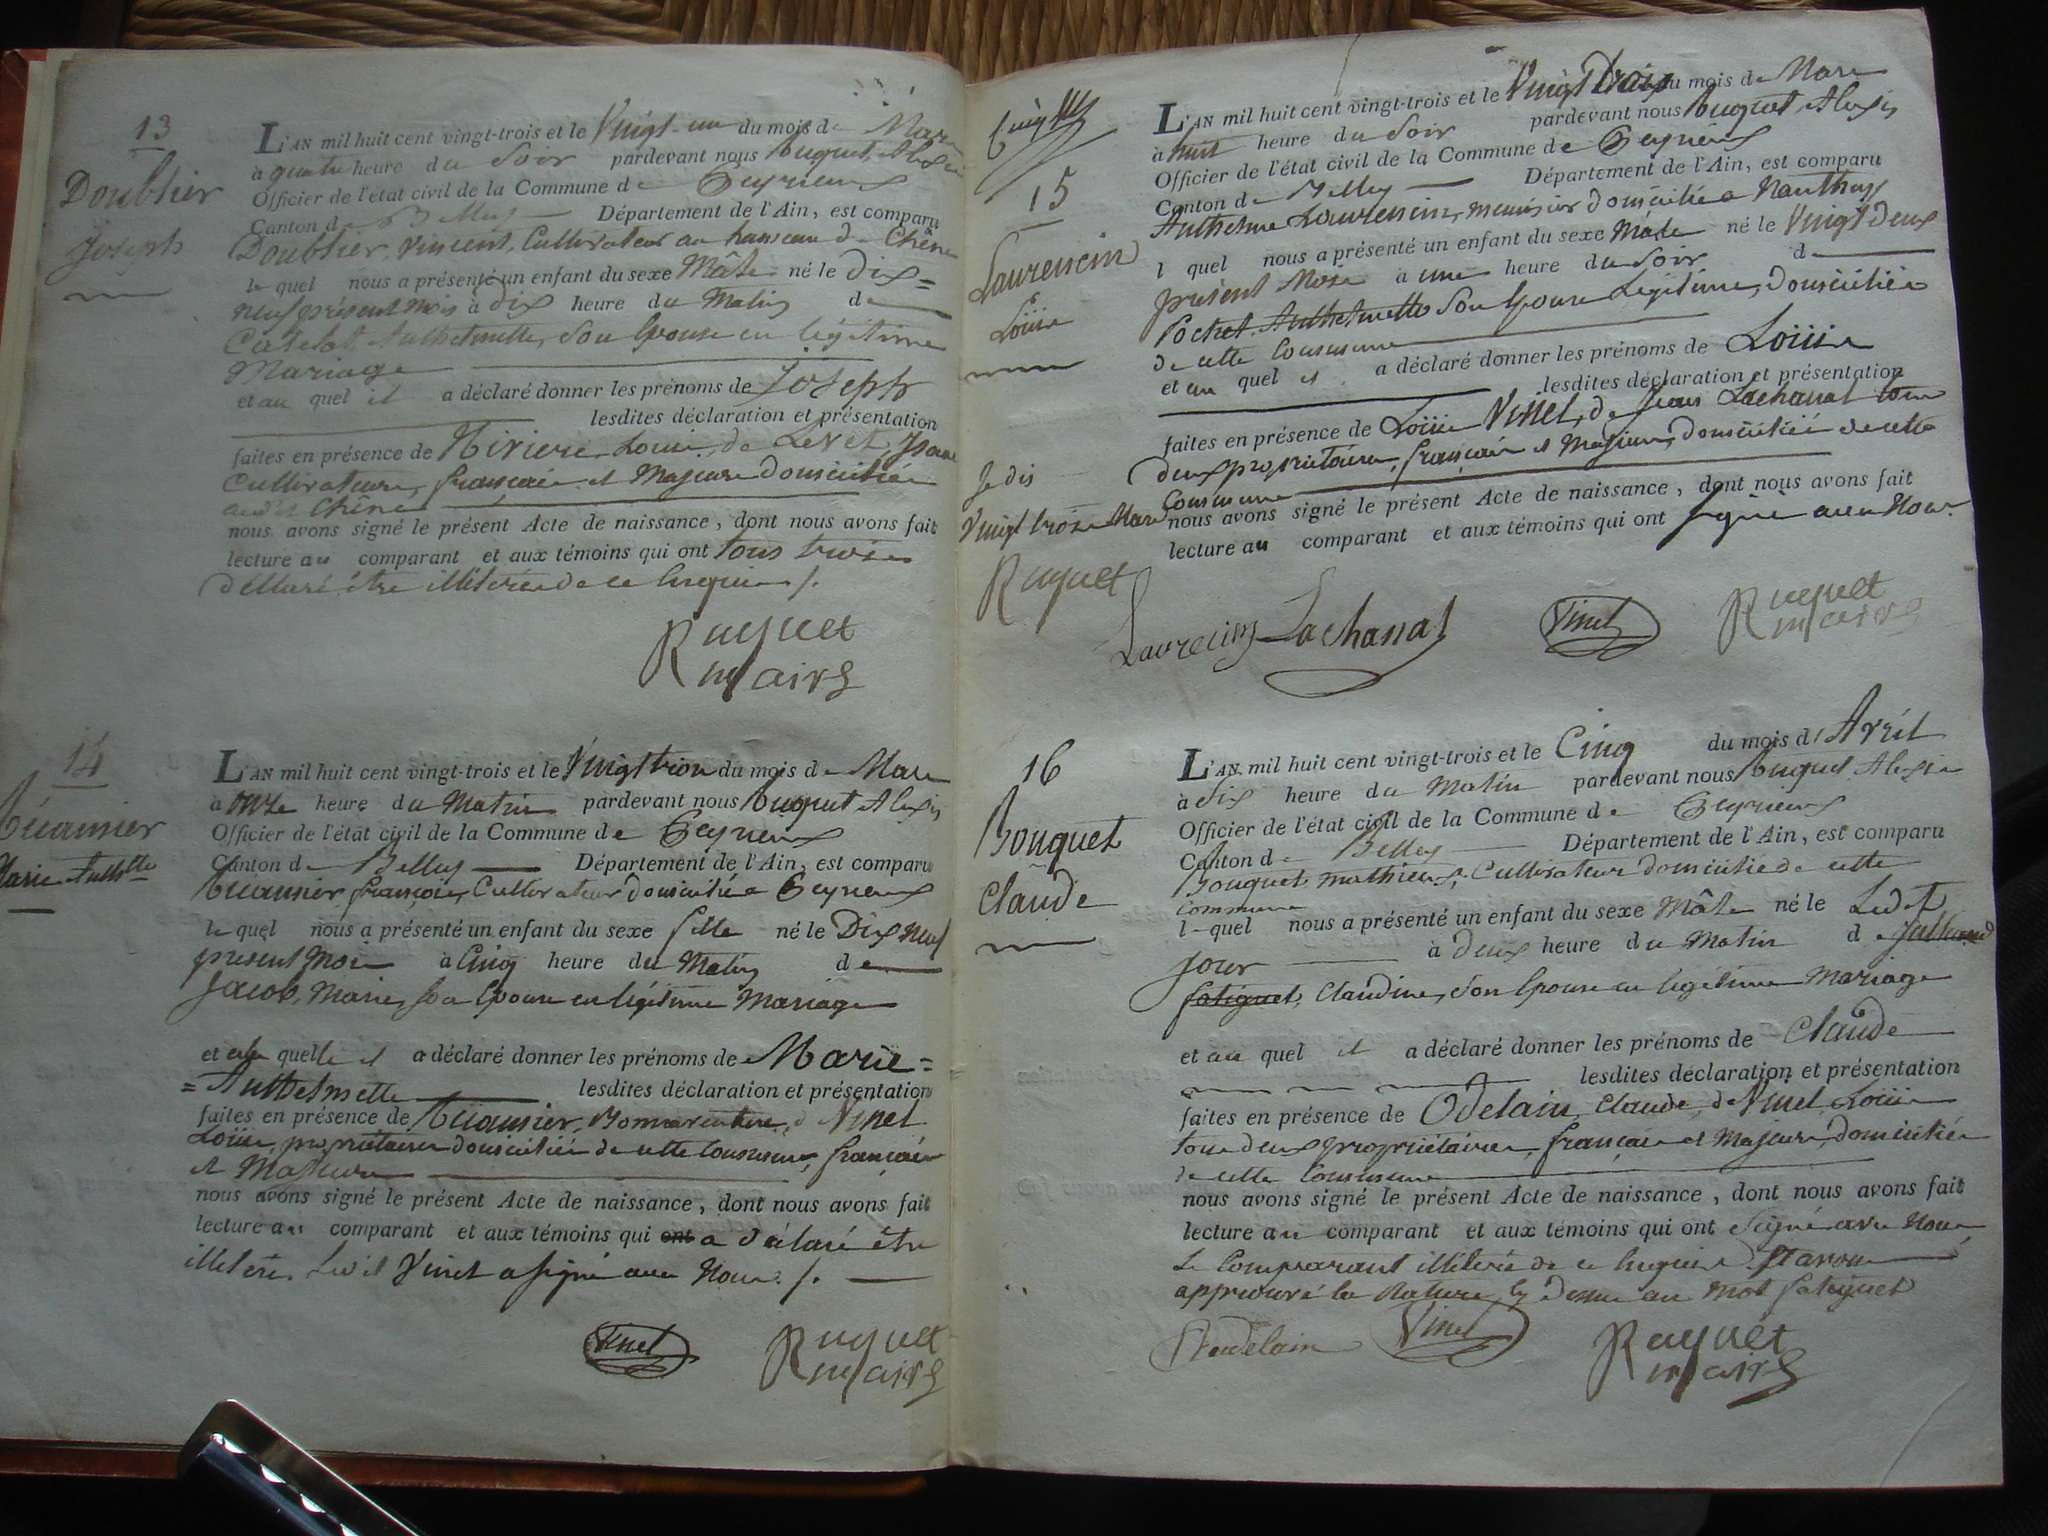 13
Doubtier
Joseph
L'AN mil huit cent vingt-trois et le Vingt-un du mois de Mars
à quatre heure du Soir pardevant nous Ruguet, Alexis
Officier de l'état civil de la Commune de Ceyzrieux
Canton de Belley Département de l'Ain, est comparu
Doubtier, Vincent, Cultivateur au hameau de Chêne
lequel nous a présenté un enfant du sexe Mâle né le dix=
neuf présent mois à dix heure du Matin de
Anthelmette, Son Epouse en légitime
Mariage
et au quel il a déclaré donner les prénoms de Joseph
lesdites déclaration et présentation
faites en présence de Riviere Louis, de Levet,
Cultivateurs, français et Majeurs domiciliés
audit Chêne
nous avons signé le présent Acte de naissance, dont nous avons fait
lecture au comparant et aux témoins qui ont tous trois
déclaré être illitérés de ce Enquis /.
Ruguet
maire
14
Marie Anthtte
L'AN mil huit cent vingt-trois et le Vingt trois du mois de Mars
à onze heure du Matin pardevant nous Ruguet Alexis
Officier de l'état civil de la Commune de Ceyzrieux
Canton de Belley Département de l'Ain, est comparu
françois, Cultivateur domicilié a Ceyzrieux
lequel nous a présenté un enfant du sexe fille né le Dix neuf
present Mois à Cinq heure du Matin de
Jacob, Marie, Sa Epouse en légitime Mariage
et a la quelle il a déclaré donner les prénoms de Marie=
=Anthelmette lesdites déclaration et présentation
faites en présence de Bonnaventure, & Vinet
Loüis, propriétaires domiciliés de cette Commune, français
et Majeurs
nous avons signé le présent Acte de naissance, dont nous avons fait
lecture au comparant et aux témoins qui ont a déclaré être
illitéré. Ledit Vinet a signé avec Nous /.
Vinet
Ruguet
maire
15
Laurencin
Loüis
Je dis
Vingt trois Mars
Ruguet
L'AN mil huit cent vingt-trois et le Vingt Trois du mois de Mars
à huit heure du Soir pardevant nous Ruguet Alexis
Officier de l'état civil de la Commune de Ceyzrieux
Canton de Belley Département de l'Ain, est comparu
Anthelme Laurencin, menuisier domicilié a Nanthuy
lquel nous a présenté un enfant du sexe Mâle né le Vingt Deux
présent Mois à une heure du Soir de
Pochet Anthelmette Son Epouse Légitime, Domiciliée
de cette Commune
et au quel il a déclaré donner les prénoms de Loüis
lesdites déclaration et présentation
faites en présence de Loüis Vinet, de Jean Lachanal tous
deux propriétaires, français et Majeurs, domiciliés de cette
Commune
nous avons signé le présent Acte de naissance, dont nous avons fait
lecture au comparant et aux témoins qui ont signé avec Nous
Laurecin Lachanal Vinet
Ruguet
maire
16
Bouquet
Claude
L'AN mil huit cent vingt-trois et le Cinq du mois d'Avril
à dix heure du Matin pardevant nous Ruguet Alexis
Officier de l'état civil de la Commune de Ceyzrieux
Canton de Belley Département de l'Ain, est comparu
Bouquet, mathieu, Cultivateur domicilié de cette
commune
lquel nous a présenté un enfant du sexe Mâle né le Ledit
jour à deux heure du Matin de
fatiguet, Claudine, Son Epouse en légitime Mariage
et au quel il a déclaré donner les prénoms de Claude
lesdites déclaration et présentation
faites en présence de Odelain, Claude, de Vinet, Loüis
tous deux propriétaires, français et Majeurs, domiciliés
de cette Commune
nous avons signé le présent Acte de naissance, dont nous avons fait
lecture au comparant et aux témoins qui ont Signé avec Nous
Le Comparant illitéré de ce Enquis & avons
approuvé la Rature cy Dessus au Mot fatiguet
Vinet
Ruguet
maire